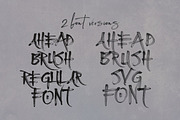 2 font versions
AHEAD
BRUSH
REGULAR
FONT
AHEAD
BRUSH
SVG
FONT